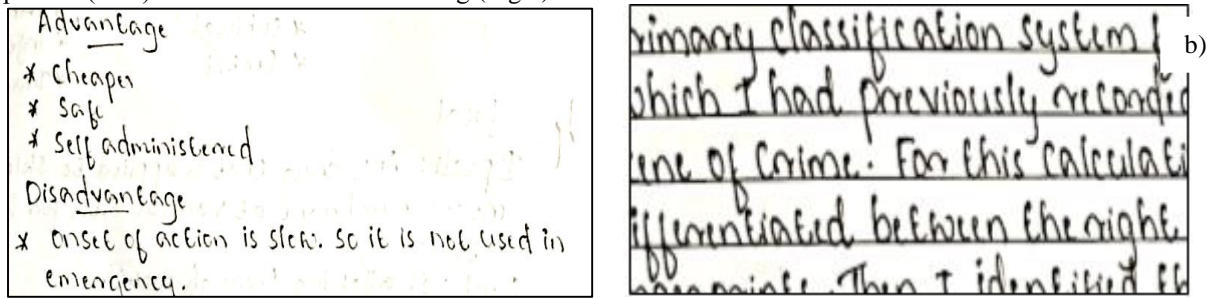 Advantage
* Cheaper
* Safe
* Self administered
Disadvantage
* Onset of action is slow. So it is not used in
emergency.
rimary classification system
b)
which I had previously recorded
ene of Crime. For this calculati
ifferentiated between the right
Then I identified th